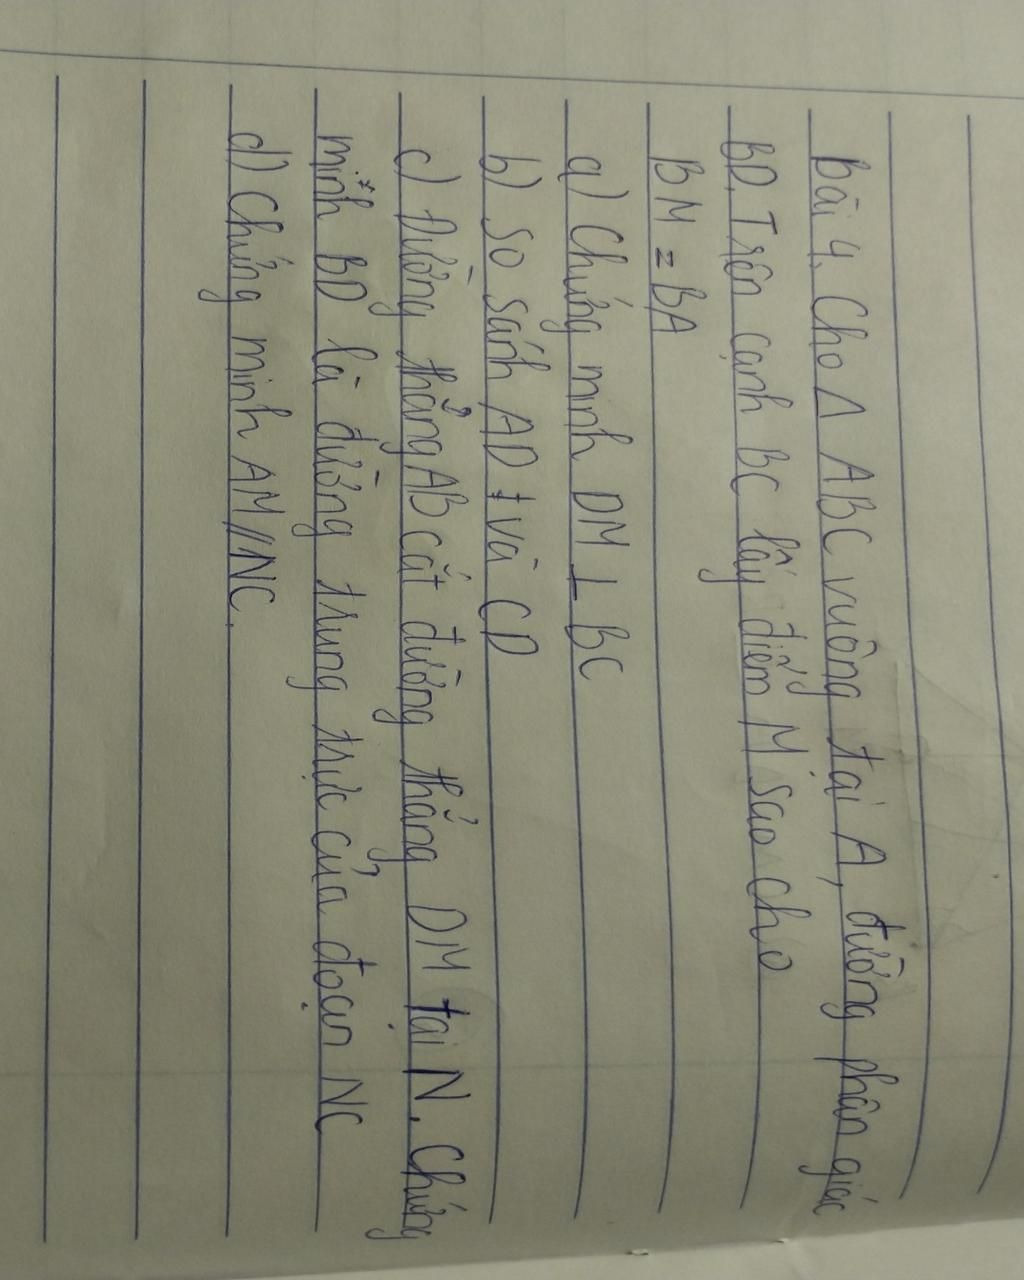 Bài 4. Cho Δ ABC vuông tại A, đường phân giác
BD. Trên cạnh BC lấy điểm M sao cho
BM = BA
a) Chứng minh DM ⊥ BC
b) So sánh AD và CD
c) Đường thẳng AB cắt đường thẳng DM tại N. Chứng
minh BD là đường trung trực của đoạn NC
d) Chứng minh AM // NC.